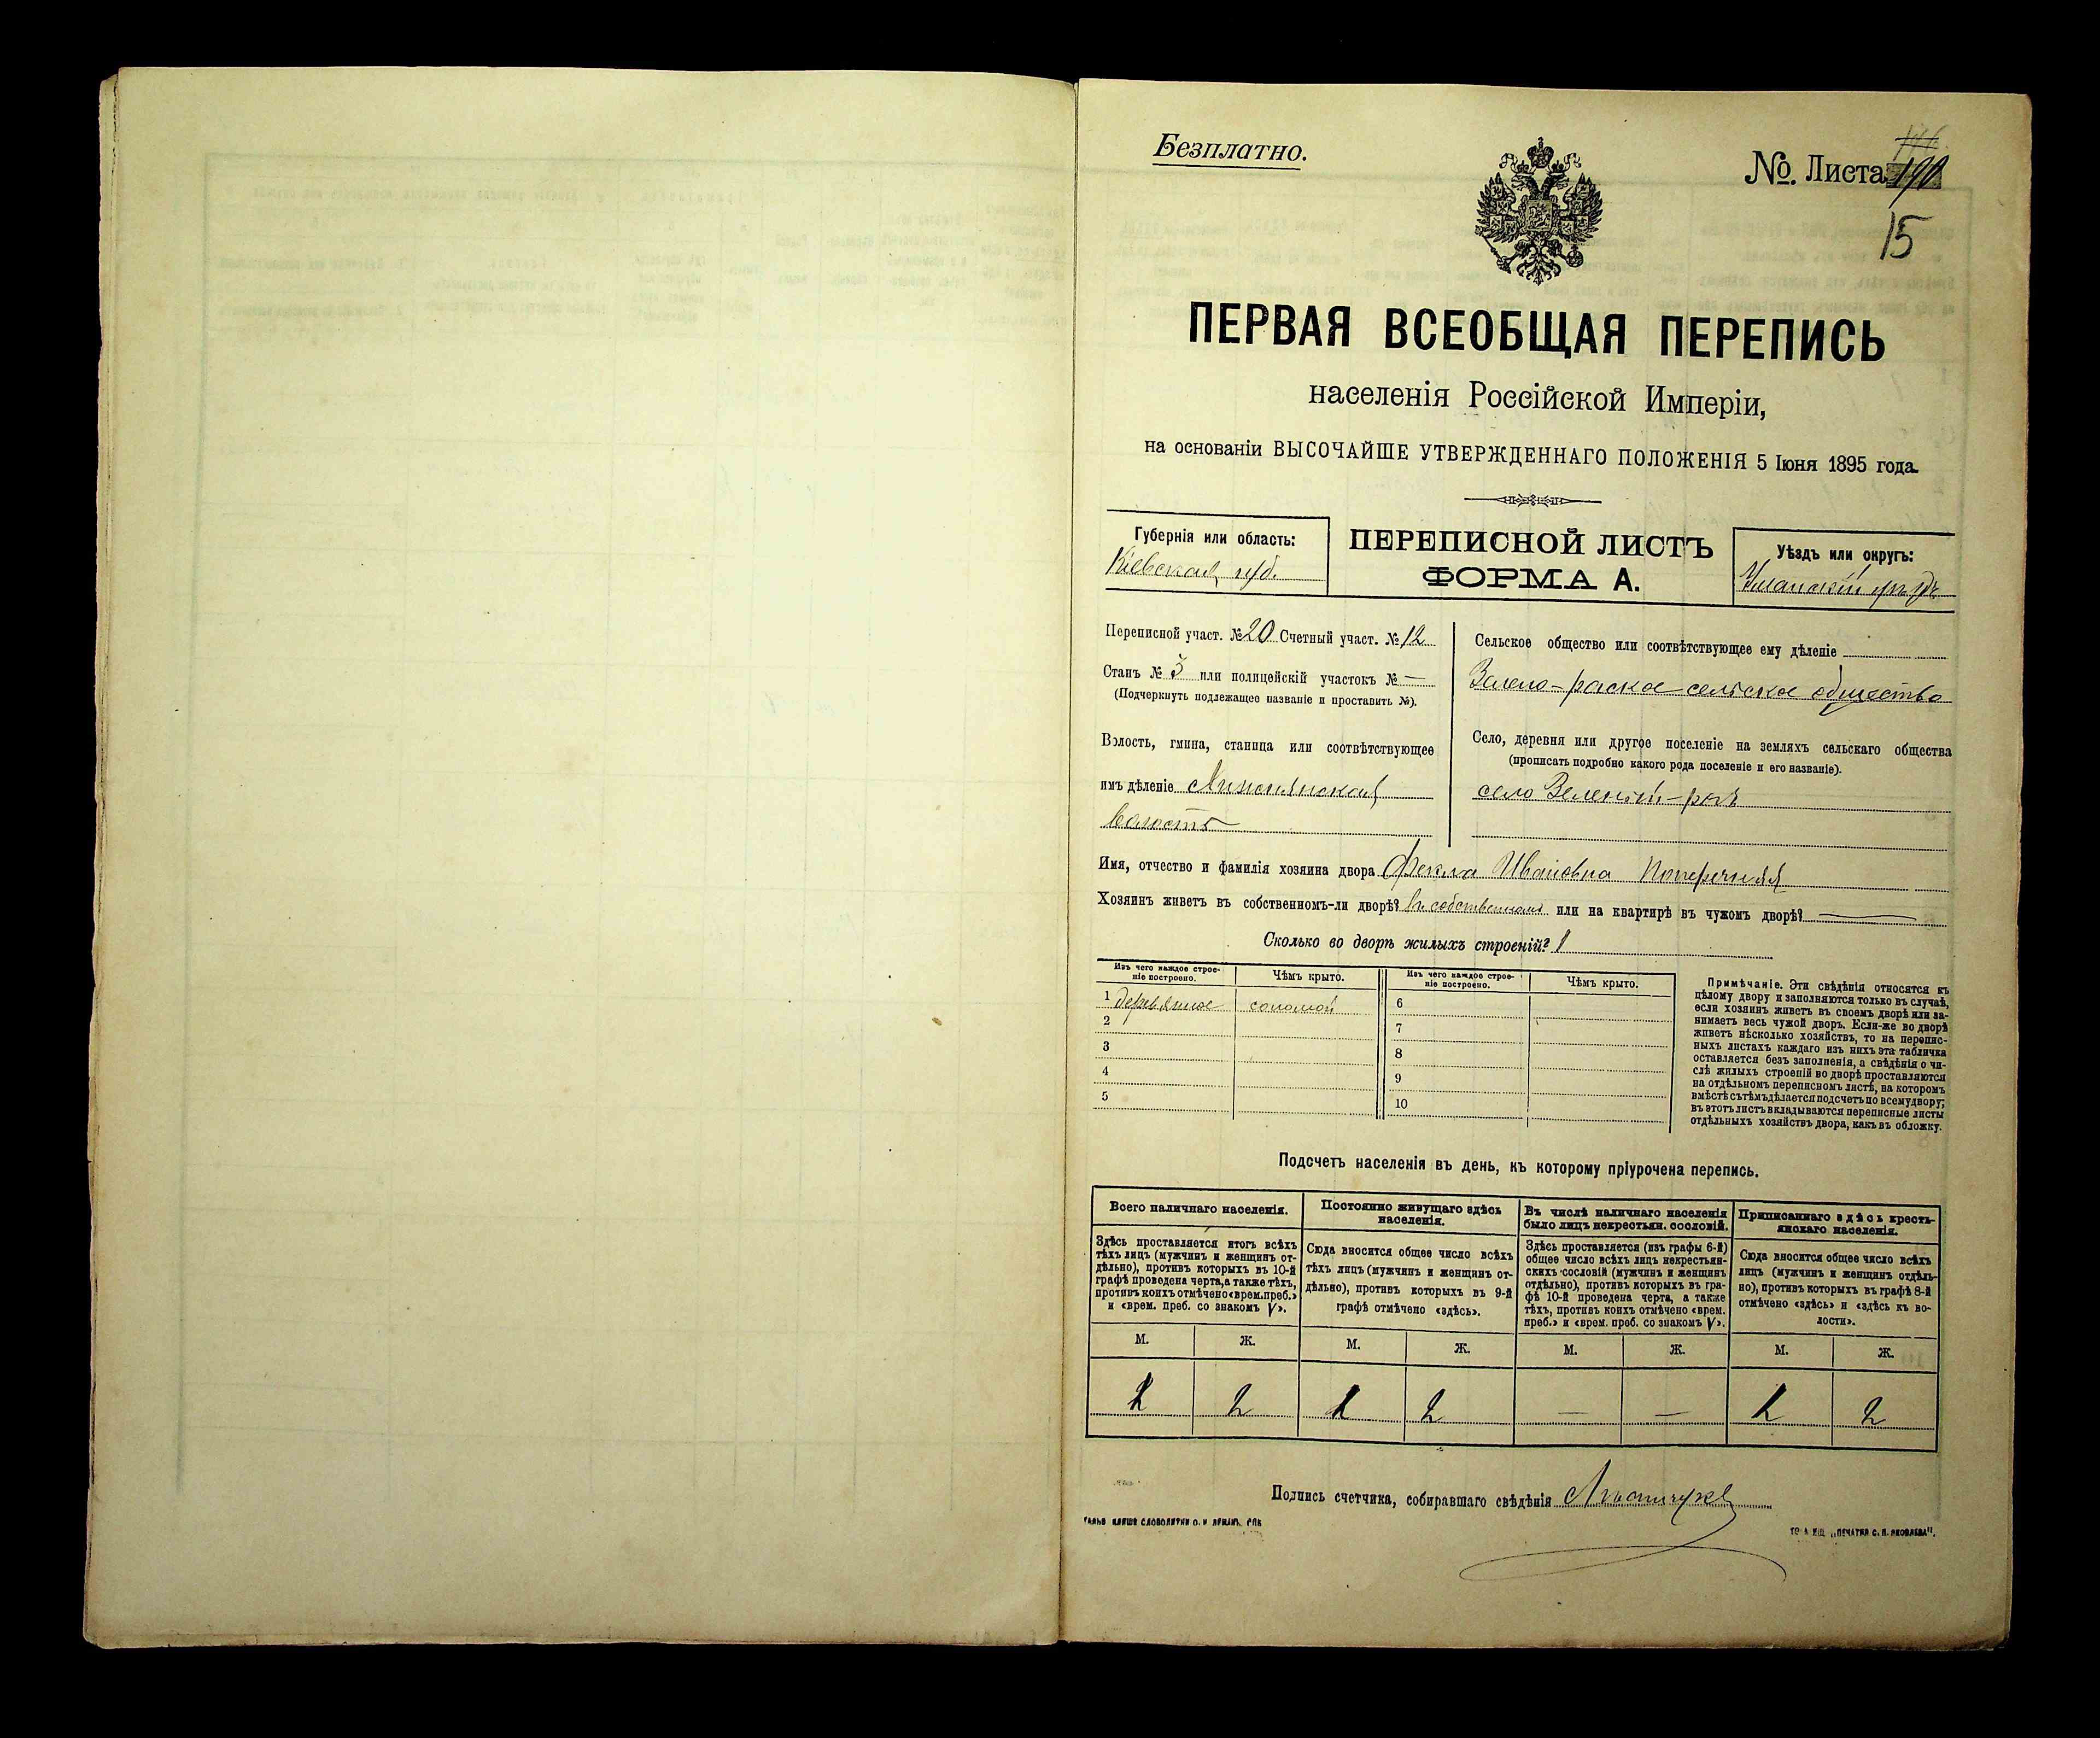 Безплатно.
№. Листа 190
15
ПЕРВАЯ ВСЕОБЩАЯ ПЕРЕПИСЬ
населенія Россійской Имперіи,
на основаніи ВЫСОЧАЙШЕ УТВЕРЖДЕННАГО ПОЛОЖЕНІЯ 5 Іюня 1895 года.
Губернія или область:
Кіевская губ.
ПЕРЕПИСНОЙ ЛИСТЪ
ФОРМА А.
Уѣздъ или округъ:
Уманскій уѣздъ
Переписной участ. № 20 Счетный участ. № 12
Станъ № 3 или полицейскій участокъ № —
(Подчеркнуть подлежащее названіе и проставить №).
Волость, гмина, станица или соотвѣтствующее
имъ дѣленіе
волость
Сельское общество или соотвѣтствующее ему дѣленіе
Зелено-рогское сельское общество
Село, деревня или другое поселеніе на земляхъ сельскаго общества
(прописать подробно какого рода поселеніе и его названіе).
село Зеленый-рогъ
Имя, отчество и фамилія хозяина двора Фекла Ивановна Поперечняя
Хозяинъ живетъ въ собственномъ-ли дворѣ? въ собственномъ или на квартирѣ въ чужомъ дворѣ? —
Сколько во дворѣ жилыхъ строеній? 1
Изъ чего каждое строеніе построено.
Чѣмъ крыто.
Изъ чего каждое строеніе построено.
Чѣмъ крыто.
1 деревянное соломой 6
2 7
3 8
4 9
5 10
Примѣчаніе. Эти свѣдѣнія относятся къ
цѣлому двору и заполняются только въ случаѣ,
если хозяинъ живетъ въ своемъ дворѣ или за-
нимаетъ весь чужой дворъ. Если-же во дворѣ
живетъ нѣсколько хозяйствъ, то на перепис-
ныхъ листахъ каждаго изъ нихъ эта табличка
оставляется безъ заполненія, а свѣдѣнія о чи-
слѣ жилыхъ строеній во дворѣ проставляются
на отдѣльномъ переписномъ листѣ, на которомъ
вмѣстѣ съ тѣмъ дѣлается подсчетъ по всему двору;
въ этотъ листъ вкладываются переписные листы
отдѣльныхъ хозяйствъ двора, какъ въ обложку.
Подсчетъ населенія въ день, къ которому пріурочена перепись.
Всего наличнаго населенія.
Здѣсь проставляется итогъ всѣхъ
тѣхъ лицъ (мужчинъ и женщинъ от-
дѣльно), противъ которыхъ въ 10-й
графѣ проведена черта, а также тѣхъ,
противъ коихъ отмѣчено «врем. преб.»
и «врем. преб. со знакомъ V».
Постоянно живущаго здѣсь
населенія.
Сюда вносится общее число всѣхъ
тѣхъ лицъ (мужчинъ и женщинъ от-
дѣльно), противъ которыхъ въ 9-й
графѣ отмѣчено «здѣсь».
Въ числѣ наличнаго населенія
было лицъ некрестьян. сословій.
Здѣсь проставляется (изъ графы 6-й)
общее число всѣхъ лицъ некрестьян-
скихъ сословій (мужчинъ и женщинъ
отдѣльно), противъ которыхъ въ гра-
фѣ 10-й проведена черта, а также
тѣхъ, противъ коихъ отмѣчено «врем.
преб.» и «врем. преб. со знакомъ V».
Приписаннаго здѣсь кресть-
янскаго населенія.
Сюда вносится общее число всѣхъ
лицъ (мужчинъ и женщинъ отдѣль-
но), противъ которыхъ въ графѣ 8-й
отмѣчено «здѣсь» и «здѣсь къ во-
лости».
М. Ж. М. Ж. М. Ж. М. Ж.
1 2 1 2 — — 1 2
Подпись счетчика, собиравшаго свѣдѣнія